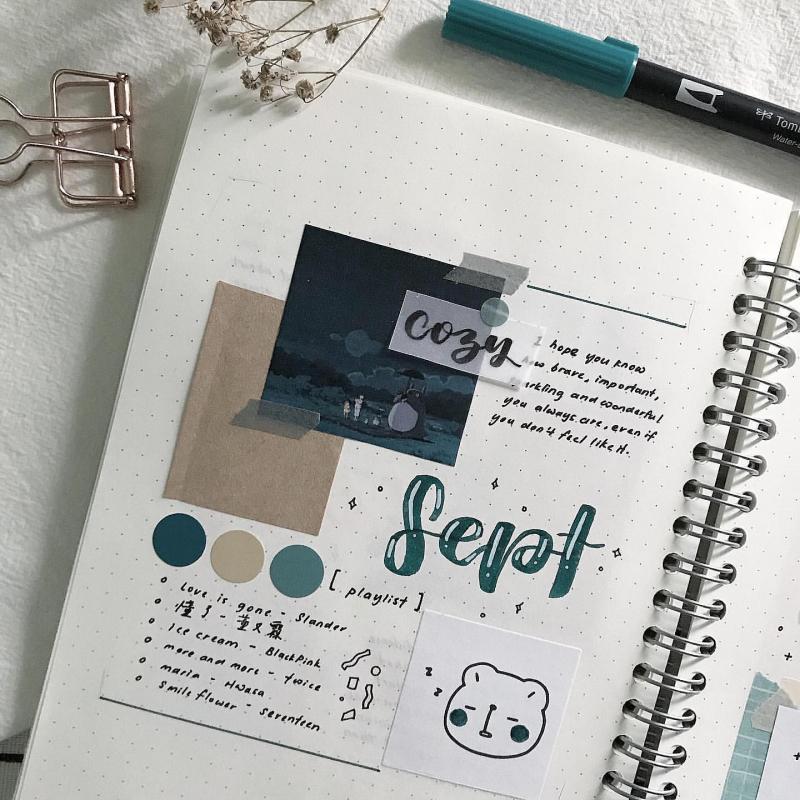 Tomb
Water-
cozy
I hope you know
how brave, important,
sparkling and wonderful
you always are, even if
you don't feel like it.
Sept
[ playlist ]
Love is gone - Slander
懂了 - 董又霖
Ice cream - BlackPink
more and more - twice
maria - Hwasa
smile flower - seventeen
z
z